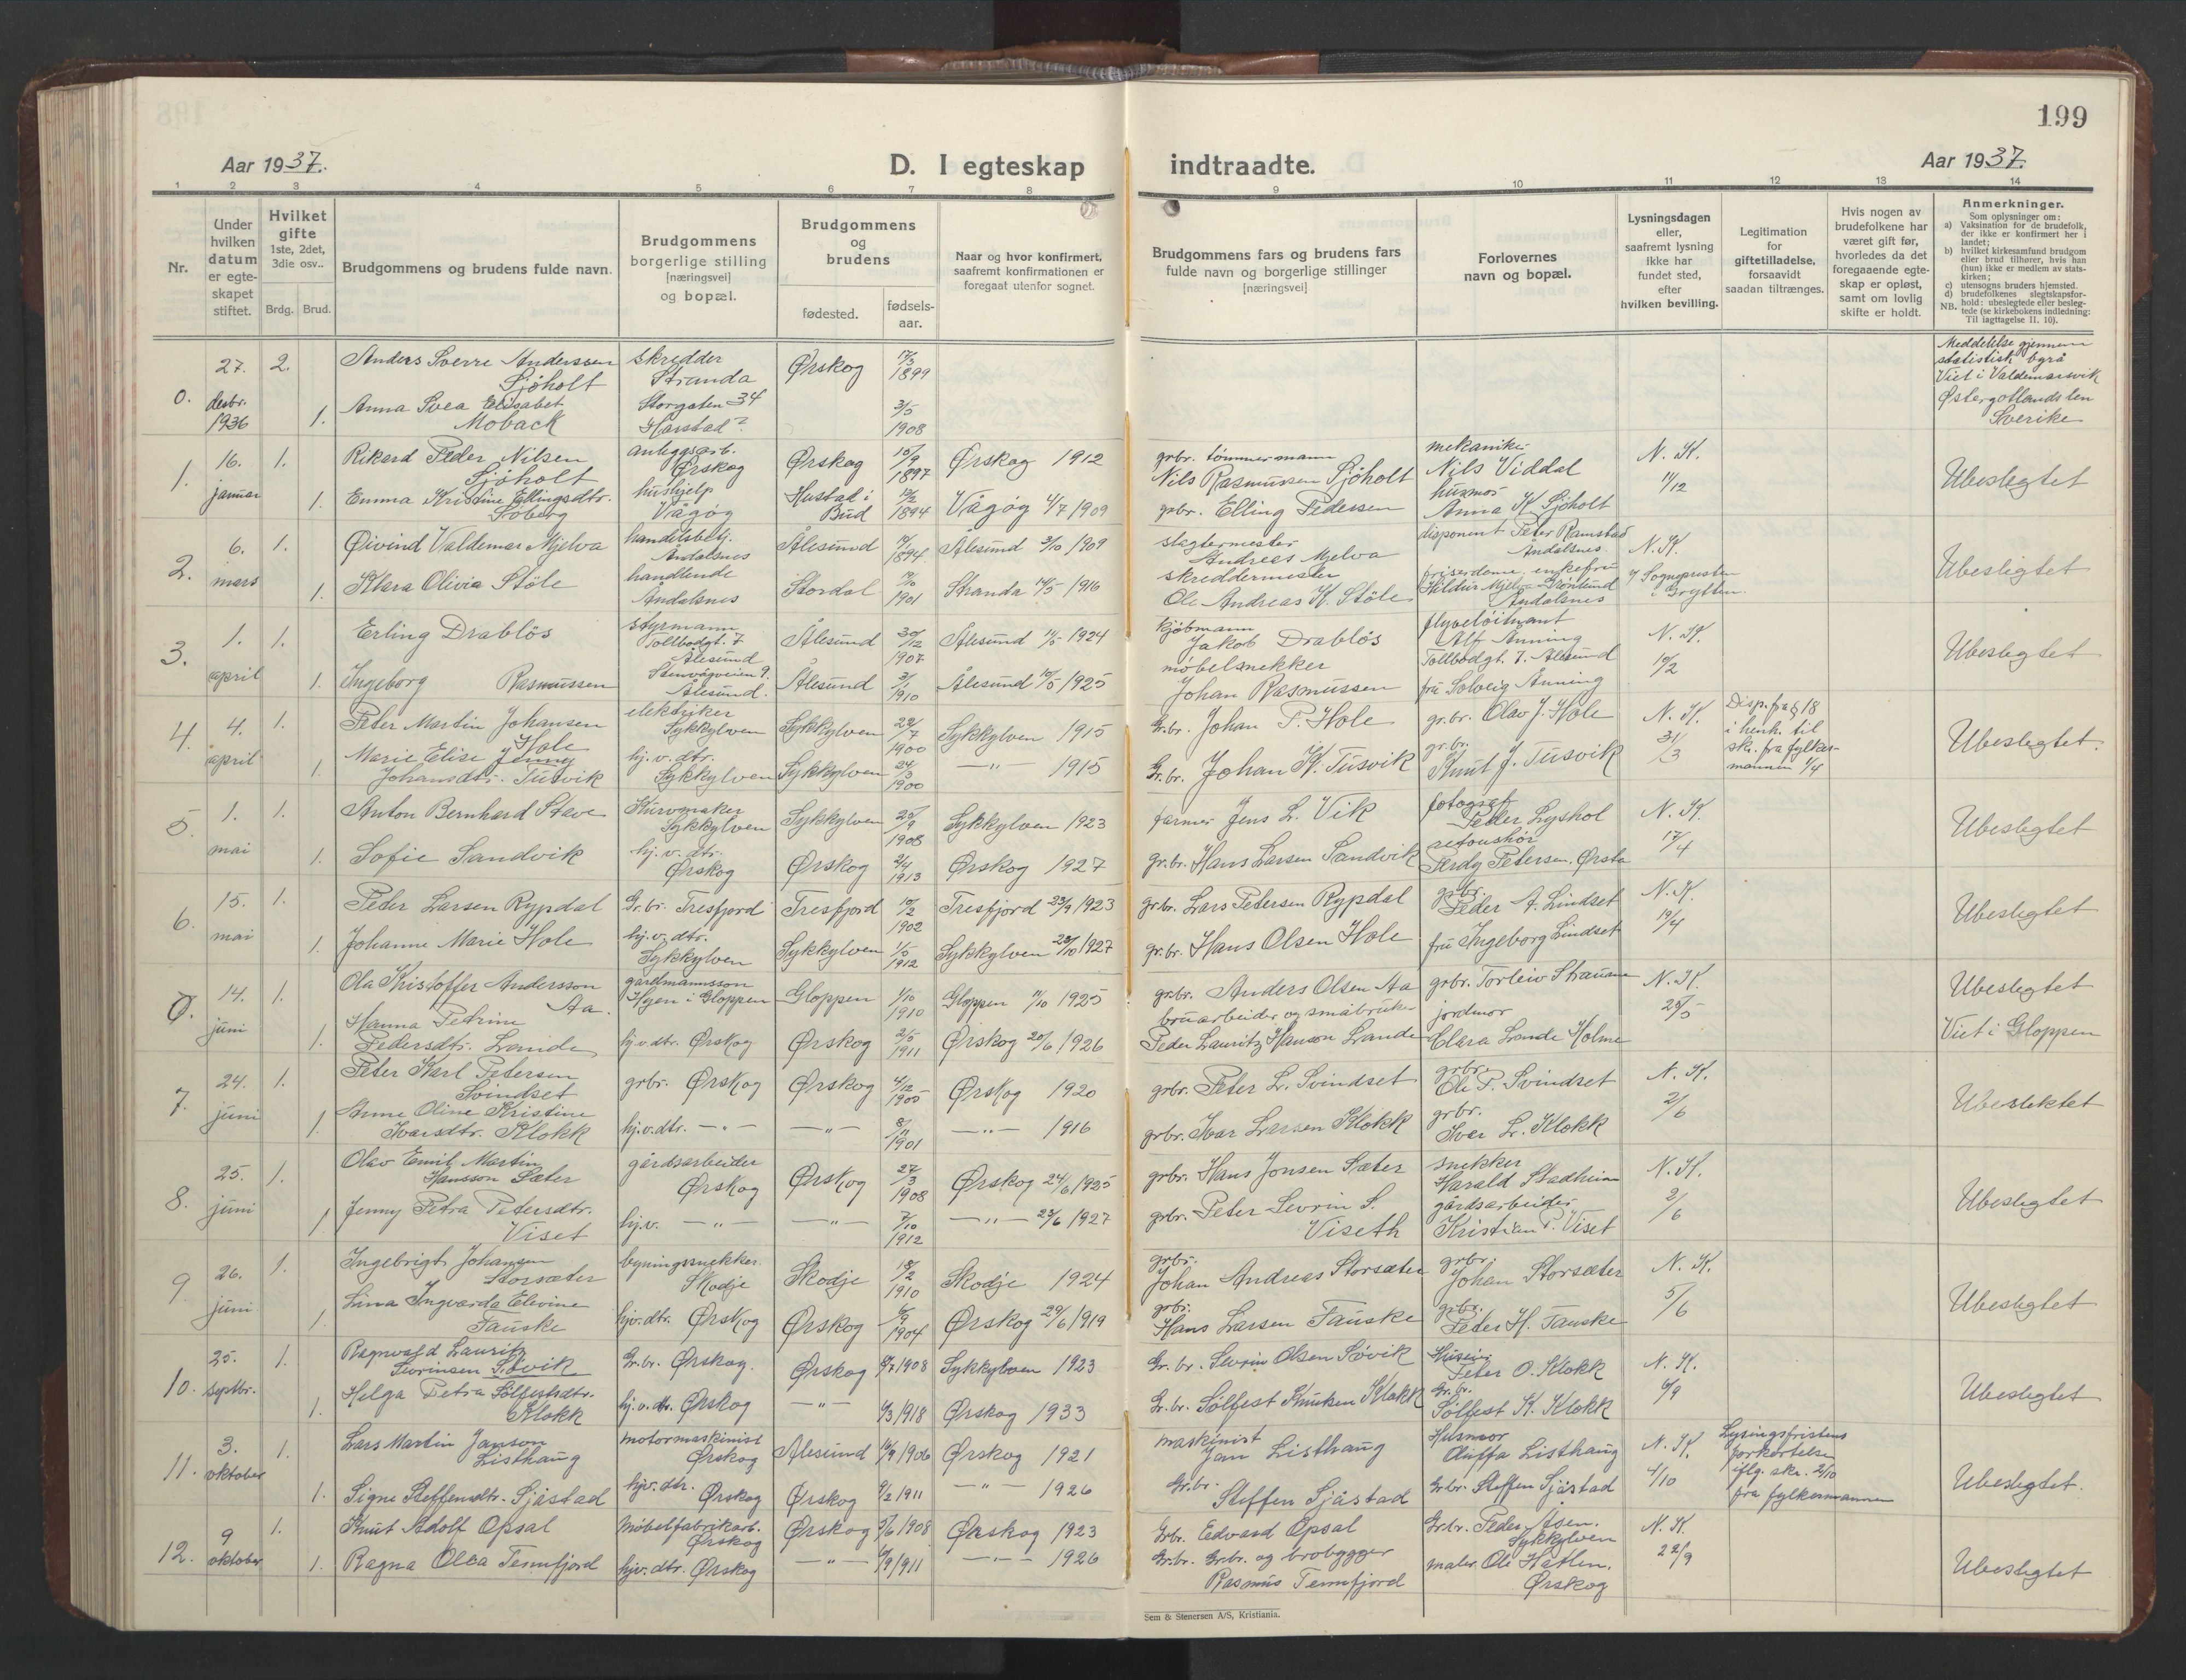 199
Aar 1937.
D. I egteskap indtraadte.
Aar 1937.
1 2 3 4 5 6 7 8 9 10 11 12 13 14
Nr.
Under hvilken datum er egteskapet stiftet.
Hvilket gifte 1ste, 2det, 3die osv..
Brdg. Brud.
Brudgommens og brudens fulde navn.
Brudgommens borgerlige stilling [næringsvei] og bopæl.
Brudgommens og brudens
fødested. fødsels-aar.
Naar og hvor konfirmert, saafremt konfirmationen er foregaat utenfor sognet.
Brudgommens fars og brudens fars fulde navn og borgerlige stillinger [næringsvei]
Forlovernes navn og bopæl.
Lysningsdagen eller, saafremt lysning ikke har fundet sted, efter hvilken bevilling.
Legitimation for giftetilladelse, forsaavidt saadan tiltrænges.
Hvis nogen av brudefolkene har været gift før, hvorledes da det foregaaende egteskap er opløst, samt om lovlig skifte er holdt.
Anmerkninger.
Som oplysninger om:
a) Vaksination for de brudefolk, der ikke er konfirmert her i landet;
b) hvilket kirkesamfund brudgom eller brud tilhører, hvis han (hun) ikke er medlem av statskirken;
c) utensogns bruders hjemsted.
d) brudefolkenes slegtskapsforhold: ubeslegtede eller beslegtede (se kirkebokens indledning:
NB. Til iagttagelse II. 10).
0. 27. desbr. 1936 2. Anders Sverre Anderssen Sjøholt skredder Stranda Ørskog 17/3 1899 Meddelelse gjennem statistisk byrå Viet i Valdemarsvik Østergotlands len Sverike
1. Anna Svea Elisabet Moback Storgaten 34 Harstad? 3/5 1908
1. 16. januar 1. Rikard Peder Nilsen Sjøholt anleggsarb. Ørskog Ørskog 10/9 1897 Ørskog 1912 grbr. tømmermann Nils Rasmussen Sjöholt mekaniker Nils Viddal N. K. 11/12 Ubeslegtet
1. Emma Kristine Ellingsdtr. Söberg hushjelp Vågøy Hustad i Bud 1894 Vågöy 4/7 1909 grbr. Elling Pedersen husmor Anna K. Sjöholt
2. 6. mars 1. Øivind Valdemar Mjelva handelsbetj. Åndalsnes Ålesund 1894 Ålesund 3/10 1909 slagtermester Andreas Mjelva disponent Peter Ramstad Åndalsnes N. K. Sognepresten i Grytten. Ubeslegtet
1. Klara Olivia Støle handlende Åndalsnes Stordal 1901 Stranda 14/5 1916 skreddermester Ole Andreas K. Støle enkefru Åndalsnes
3. 1. april 1. Erling Drabløs styrmann Tollbodgt. 7 Ålesund Ålesund 30/12 1907 Ålesund 11/5 1924 kjøbmann Jakob Drabløs flyveløitnant Alf Anning Tollbodgt. 7. Ålesund N. K. 10/2 Ubeslegtet
1. Ingeborg Rasmussen Stenvågveien 9. Ålesund. Ålesund 3/1 1910 Ålesund 10/5 1925 møbelsnekker Johan Rasmussen fru Solveig Anning
4. 4. april 1. Peter Martin Johansen Hole elektriker Sykkylven Sykkylven 22/7 1900 Sykkylven 1915 Gr.br. Johan P. Hole gr.br. Olav J. Hole N. K. 31/3 Disp. fra § 18 i henh. til skr. fra fylkesmannen 1/4 Ubeslegtet.
1. Marie Elise Jenny Johansdtr. Tusvik hj. v. dtr. Sykkylven Sykkylven 24/3 1900 —"— 1915 Gr.br. Johan K. Tusvik gr.br. Knut J. Tusvik
5. 1. mai 1. Anton Bernhard Stave Kurvmaker Sykkylven Sykkylven 25/9 1908 Sykkylven 1923 farmer Jens L. Vik fotograf Peder Lyshol N. K. 17/4 Ubeslegtet
1. Sofie Sandvik hj. v. dtr. Ørskog Ørskog 2/4 1913 Ørskog 1927 gr.br. Hans Larsen Sandvik Ferdy Petersen, Ørsta
6. 15. mai 1. Peder Larsen Rypdal Gr.br. Tresfjord Tresfjord 10/2 1902 Tresfjord 23/9 1923 gr.br. Lars Petersen Rypdal gr.br. Peder A. Lindset N. K. 19/4 Ubeslegtet
1. Johanne Marie Hole hj. v. dtr. Sykkylven Sykkylven 1/5 1912 Sykkylven 28/10 1927 gr.br. Hans Olsen Hole fru Ingeborg Lindset
Ø. 14. juni 1. Ola Kristoffer Andersson Aa. gårdmannsson Hyen i Gloppen Gloppen 1/10 1910 Gloppen 11/10 1925 gr.br. Anders Olsen Aa grbr. Torleiv Straume N. K. 25/5 Ubeslegtet Viet i Gloppen
1. Hanna Petrine Pedersdtr. Lande hj.v.dtr. Ørskog Ørskog 2/5 1911 Ørskog 20/6 1926 bruarbeider og småbruker Peder Lauritz Hanson Lande jordmor Clara Lande Holme
7. 24. juni 1. Peter Karl Petersen Svindset grbr. Ørskog Ørskog 4/12 1905 Ørskog 1920 grbr. Peter L. Svindset grbr. Ole P. Svindset N. K. 2/6 Ubeslektet
1. Anne Oline Kristine Ivarsdtr. Klokk hj.v.dtr. —"— —"— 8/11 1901 —"— 1916 grbr. Ivar Larsen Klokk grbr. Ivar L. Klokk
8. 25. juni 1. Olav Emil Martin Hansson Sæter gårdsarbeider Ørskog Ørskog 27/3 1908 Ørskog 24/6 1925 grbr. Hans Jonsen Sæter snekker Harald Stadheim N. K. 2/6 Ubeslegtet
1 Jenny Petra Petersdtr. Viset hj.v. —"— —"— 7/10 1912 —"— 23/6 1927 grbr. Peter Sevrin S. Viseth gårdsarbeider Kristian P. Viset
9 26. juni 1. Ingebrigt Johansen Storsæter bygningssnekker. Skodje Skodje 18/2 1910 Skodje 1924 grbr. Johan Andreas Storsæter grbr. Johan Storsæter N. K. 5/6 Ubeslegtet
1. Lina Ingvarda Elevine Fauske hjv.dtr. Ørskog Ørskog 6/9 1904 Ørskog 29/6 1919 grbr. Hans Larsen Fauske grbr. Peder H. Fauske
10. 25. septbr. 1. Ragnvald Lauritz Sevrinsen Søvik Gr.br. Ørskog. Ørskog 8/7 1908 Sykkylven 1923 Gr.br. Sevrin Olsen Søvik Peter O. Klokk N. K. 6/9 Ubeslegtet
1. Helga Petra Sølfestsdtr. Klokk hj.v.dtr. Ørskog —"— 6/3 1918 Ørskog 1933 Gr.br. Sølfest Knutsen Klokk Gr.br. Sølfest K. Klokk
11. 3. oktober 1. Lars Martin Janson Listhaug motormaskinist Ørskog Ålesund 16/9 1906 Ørskog 1921 maskinist Jan Listhaug Husmor Listhaug N. K. 4/10 Lysingsfristens forkortelse iflg. skr. 2/10 fra fylkesmannen Ubeslegtet.
1. Signe Steffensdtr. Sjåstad hjv. dtr. Ørskog Ørskog 9/2 1911 —"— 1926 Gr.br. Steffen Sjåstad Gr.br. Steffen Sjåstad
12. 9 oktober 1. Knut Adolf Opsal Møbelfabrikarb. Ørskog Ørskog 5/6 1908 Ørskog 1923 Gr.br. Edvard Opsal Gr.br. Peder Åsen. Sykkylven N. K. 22/9 Ubeslegtet
1. Ragna Olea Tennfjord hjv. dtr. Ørskog —"— 6/9 1911 —"— 1926 Gr.br. Gr.br. og brobygger Rasmus Tennfjord maler Ole Håtlen. Ørskog
Sem & Stenersen A/S, Kristiania.